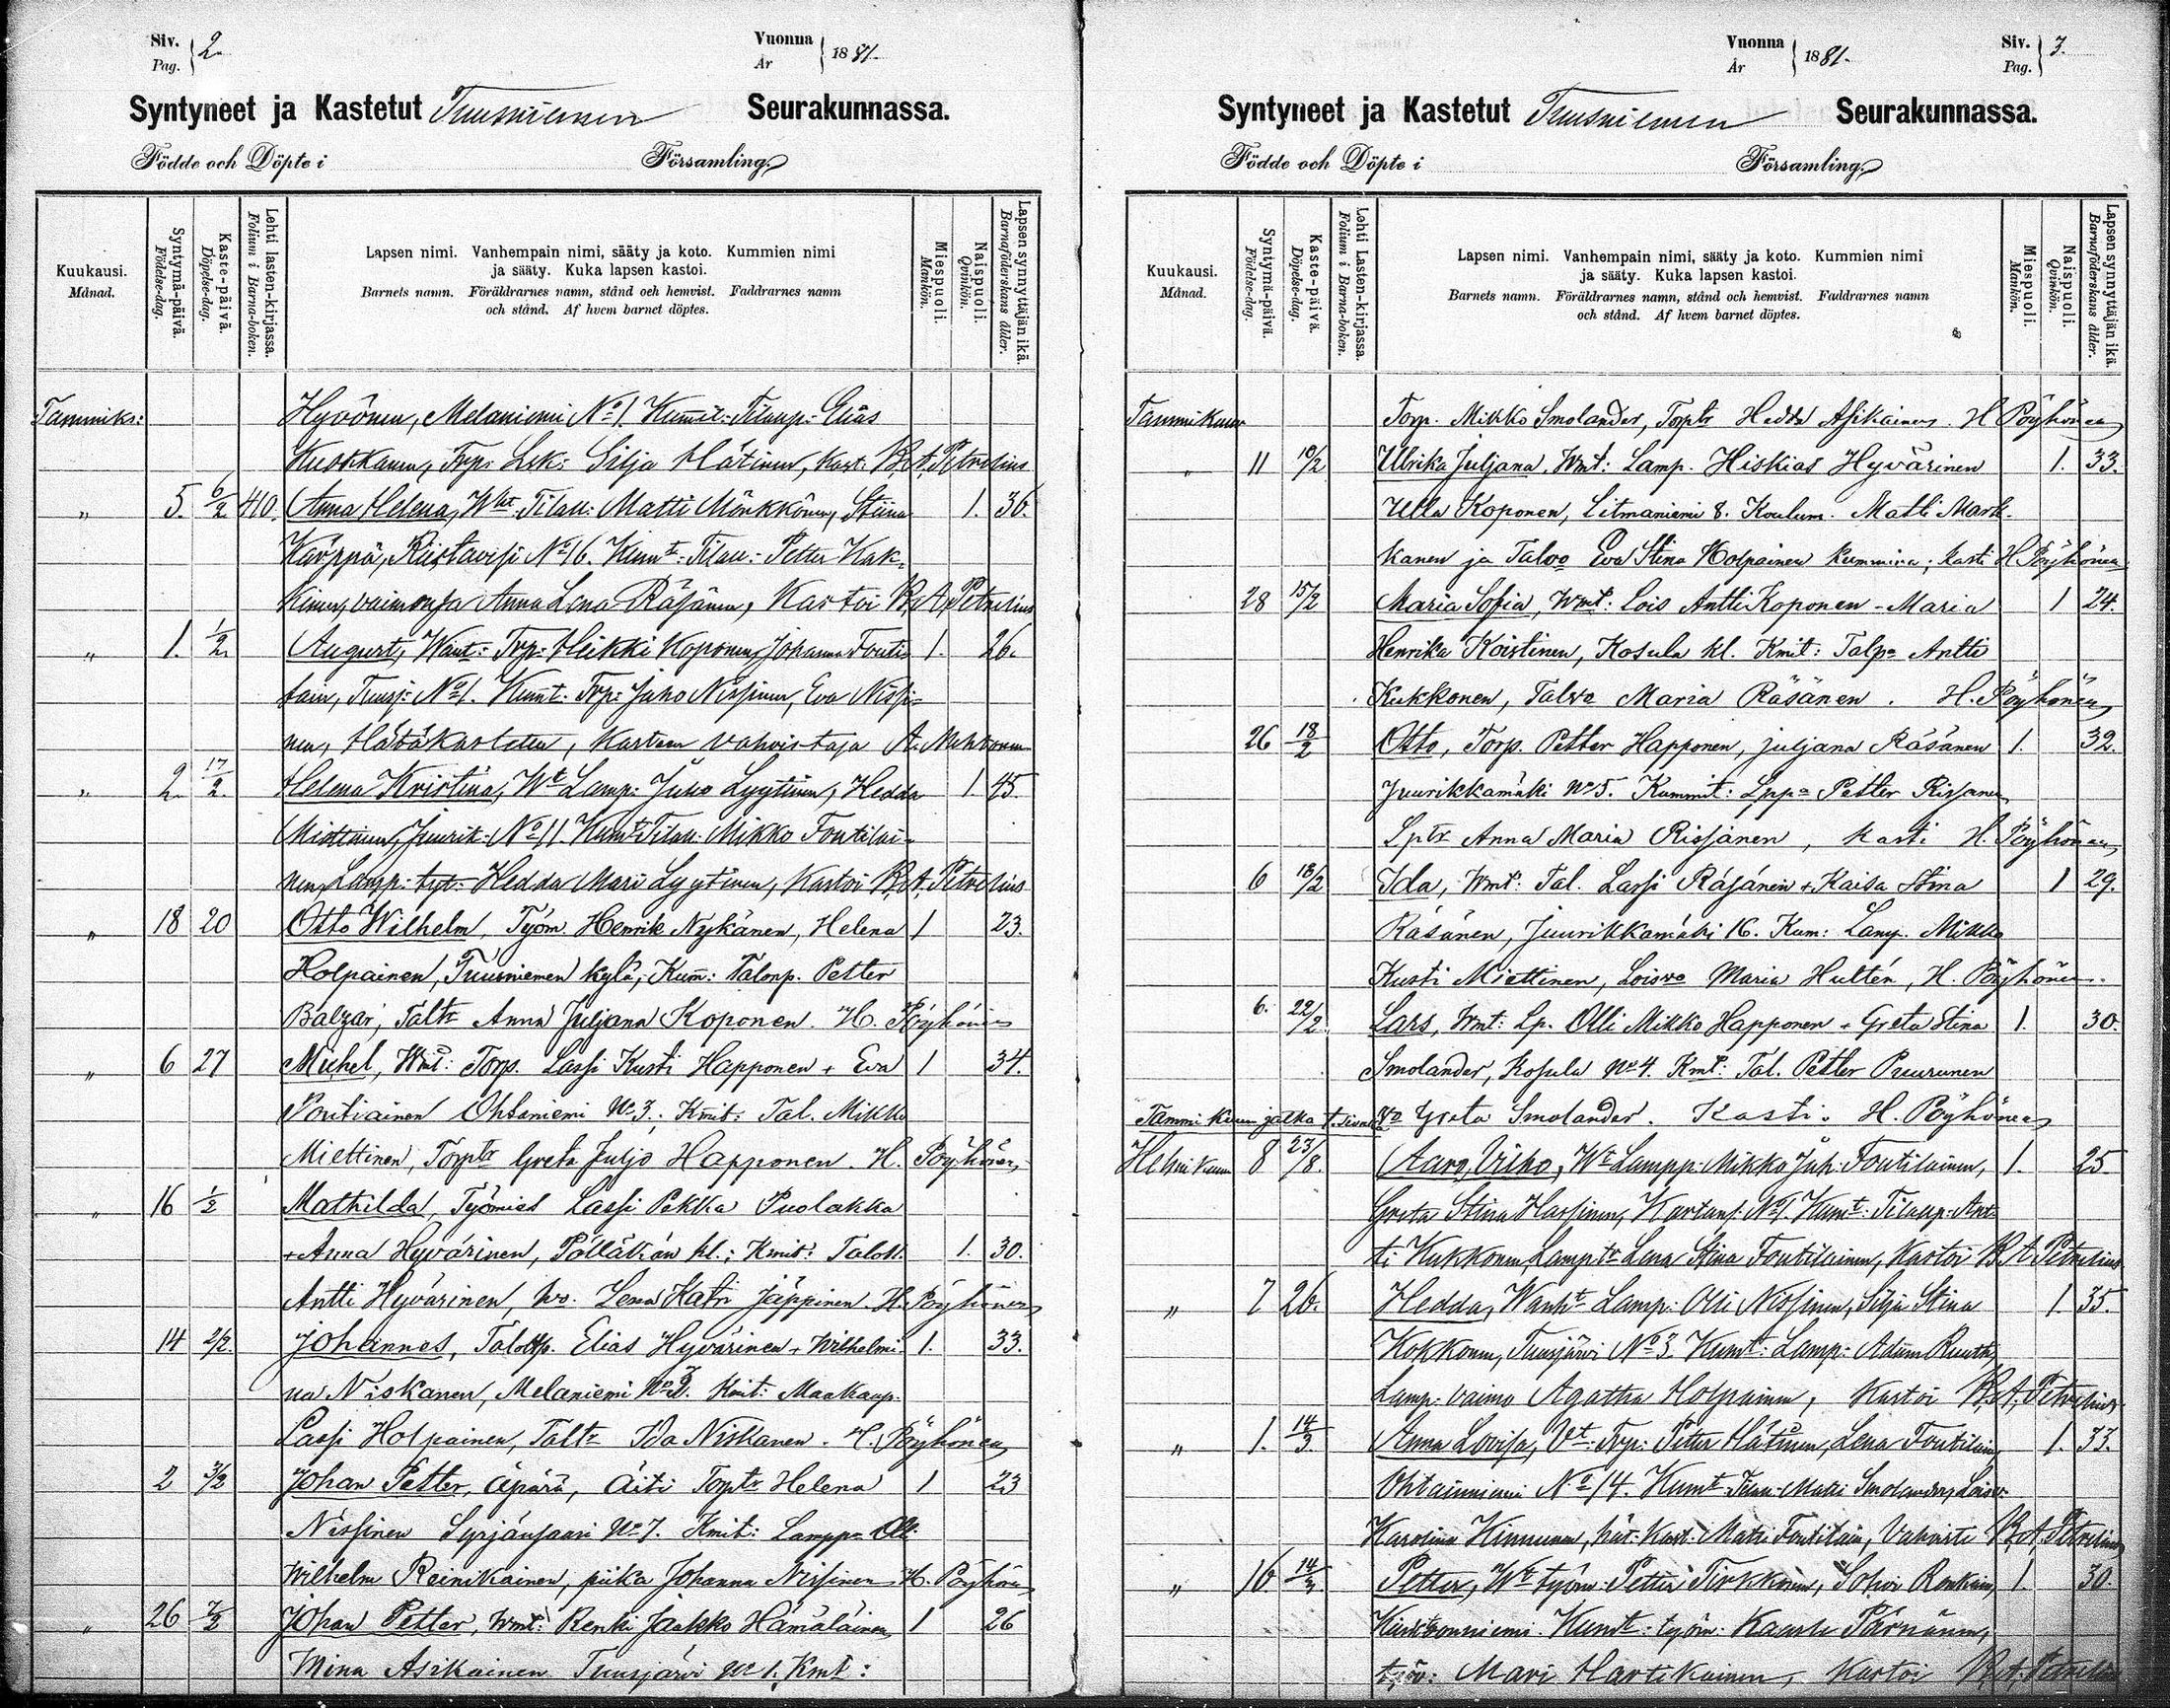 Siv. Pag. } 2.
Vuonna År } 1881.
Syntyneet ja Kastetut Tuusniemen Seurakunnassa.
Födde och Döpte i Församling.
Kuukausi. Månad.
Syntymä-päivä. Födelse-dag.
Kaste-päivä. Döpelse-dag.
Lehti lasten-kirjassa. Folium i Barna-boken.
Lapsen nimi. Vanhempain nimi, sääty ja koto. Kummien nimi
ja sääty. Kuka lapsen kastoi.
Barnets namn. Föräldrarnes namn, stånd och hemvist. Faddrarnes namn
och stånd. Af hvem barnet döptes.
Miespuoli. Mankön.
Naispuoli. Qvinkön.
Lapsen synnyttäjän ikä. Barnaföderskans ålder.
Tammiks: Hyvönen, Melaniemi No 1. Elias
Kuokkanen, Silja Hätinen, Kast: B. A. Petrelius
" 5. 6/2 410. Anna Helena, Matti Mönkkönen, Stiina 1. 36.
Käyppä, Riistavesi No 16. Petter Kak-
kinen, vaimonsa Anna Lena Räsänen, Kastoi B. A. Petrelius
" 1. 1/2 August, Heikki Koponen, Johanna Fouti- 1. 26.
lain, Tuusj: No 1. Juho Nissinen, Eva Nissi-
nen, Hätäkastettu, Kasteen vahvistaja A.
" 2. 17/2. Helena Kristina, Wt Lamp: Juho Lyytinen, Hedda 1 45.
Miettinen, Juurik: No 11. Mikko Foutilai-
nen, Lamp: tyt: Hedda Mari Lyytinen, Kastoi B. A. Petrelius
" 18 20 Otto Wilhelm, Työm. Henrik Nykänen, Helena 1 23.
Holpainen, Tuusniemen kylä; Kum: Talonp. Petter
Balzar, Taltr Anna Juljana Koponen. H. Pöyhönen
" 6 27 Michel, Wmt: Torp. Lassi Kusti Happonen + Eva 1 34.
Poutiainen Ohtaniemi No 3.; Kmit: Tal. Mikko
Miettinen, Torptr Greta Juljo Happonen. H. Pöyhönen
" 16 1/2 Mathilda, Työmies Lassi Pekka Puolakka
+ Anna Hyvärinen, Pölläkän kl.; Kmit: Talon. 1. 30.
Antti Hyvärinen, wo. Lena Katri Jäppinen. H. Pöyhönen
14 2/2. Johannes, Talonp. Elias Hyvärinen + Wilhelmi- 1. 33.
na Niskanen, Melaniemi No 3. Kmit: Maakaup.
Lassi Holpainen, Taltr Ida Niskanen. H. Pöyhönen
2 3/2 Johan Petter, äpärä, äiti Torptr Helena 1 23
Nissinen Syrjänsaari No 7. Kmit: Lamppa Olli
Wilhelm Reinikainen, piika Johanna Nissinen H. Pöyhön
" 26 7/2 Johan Petter, Wmt: Renki Jaakko Hämäläinen 1 26
Miina Asikainen Tuusjärvi No 1. Kmt:
Vuonna År } 1881.
Siv. Pag. } 3.
Syntyneet ja Kastetut Tuusniemen Seurakunnassa.
Födde och Döpte i Församling.
Kuukausi. Månad.
Syntymä-päivä. Födelse-dag.
Kaste-päivä. Döpelse-dag.
Lehti Lasten-kirjassa. Folium i Barna-boken.
Lapsen nimi. Vanhempain nimi, sääty ja koto. Kummien nimi
ja sääty. Kuka lapsen kastoi.
Barnets namn. Föräldrarnes namn, stånd och hemvist. Faddrarnes namn
och stånd. Af hvem barnet döptes.
Miespuoli. Mankön.
Naispuoli. Qvinkön.
Lapsen synnyttäjän ikä. Barnaföderskans ålder.
Tammikuun Torp. Mikko Smolander, Torptr Hedda Asikainen. H. Pöyhönen
" 11 10/2 Ulrika Juljana, Wmt: Lamp. Hiskias Hyvärinen 1. 33.
Ulla Koponen, Litmaniemi 8. Koulum. Matti Mark-
kanen ja Talvo Eva Stina Holpainen kummina; kasti H. Pöyhönen
28 15/2 Maria Sofia, Wmt: Lois Antti Koponen - Maria 1 24.
Henrika Koistinen, Kosula kl. Kmit: Talpa Antti
Kukkonen, Talvo Maria Räsänen. H. Pöyhönen
26 18/2 Otto, Torp. Petter Happonen, Juljana Räsänen 1. 32.
Juurikkamäki No 5. Kummit: Lppa Petter Rissanen
Lptr Anna Maria Rissanen, kasti H. Pöyhönen
6 18/2 Ida, Wmt: Tal. Lassi Räsänen + Kaisa Stina 1 29.
Räsänen, Juurikkamäki 16. Kum: Lamp. Mikko
Kusti Miettinen, Loisvo Maria Hultén, H. Pöyhönen.
6. 22/2. Lars, Wmt: Lp. Olli Mikko Happonen + Greta Stina 1. 30.
Smolander, Kosula No 4. Kmt: Tal. Petter Puurunen
Tammikuun jatka vo Greta Smolander. Kasti. H. Pöyhönen
Helmikuun 8 23/8. Aaro Vilho, Wt Lampp: Mikko Juh: Foutilainen, 1. 25
Greta Stina Hassinen, No 1. Kumt: Ant-
ti Kukkonen, Lamptr Lena Stina Foutilainen, Kastoi B. A. Petrelius
" 7 26. Hedda, Lamp: Olli Nissinen, Silja Stina 1. 35.
Kokkonen, Tuusjärvi No 3 Kumt: Lamp: Adam Ruuth,
Lamp: vaimo Agatha Holpainen, Kastoi B. A. Petrelius
" 1. 14/3 Anna Lovisa, Vt Trp: Petter Hätinen, Lena Foutilain, 1. 33.
No 14. Kumt Matti Smolander, Loisv:
Karolina Kinnunen, hät: Kast: Matti Foutilain, Vahvisti B. A. Petrelius
" 16 14/3 Petter, Wt työm: Petter Tirkkonen, Sohvi Ronkain, 1. 30.
Kumt: työm: Kaarle Pärnänen,
Mari Hartikainen, Kastoi B. A. Petrelius